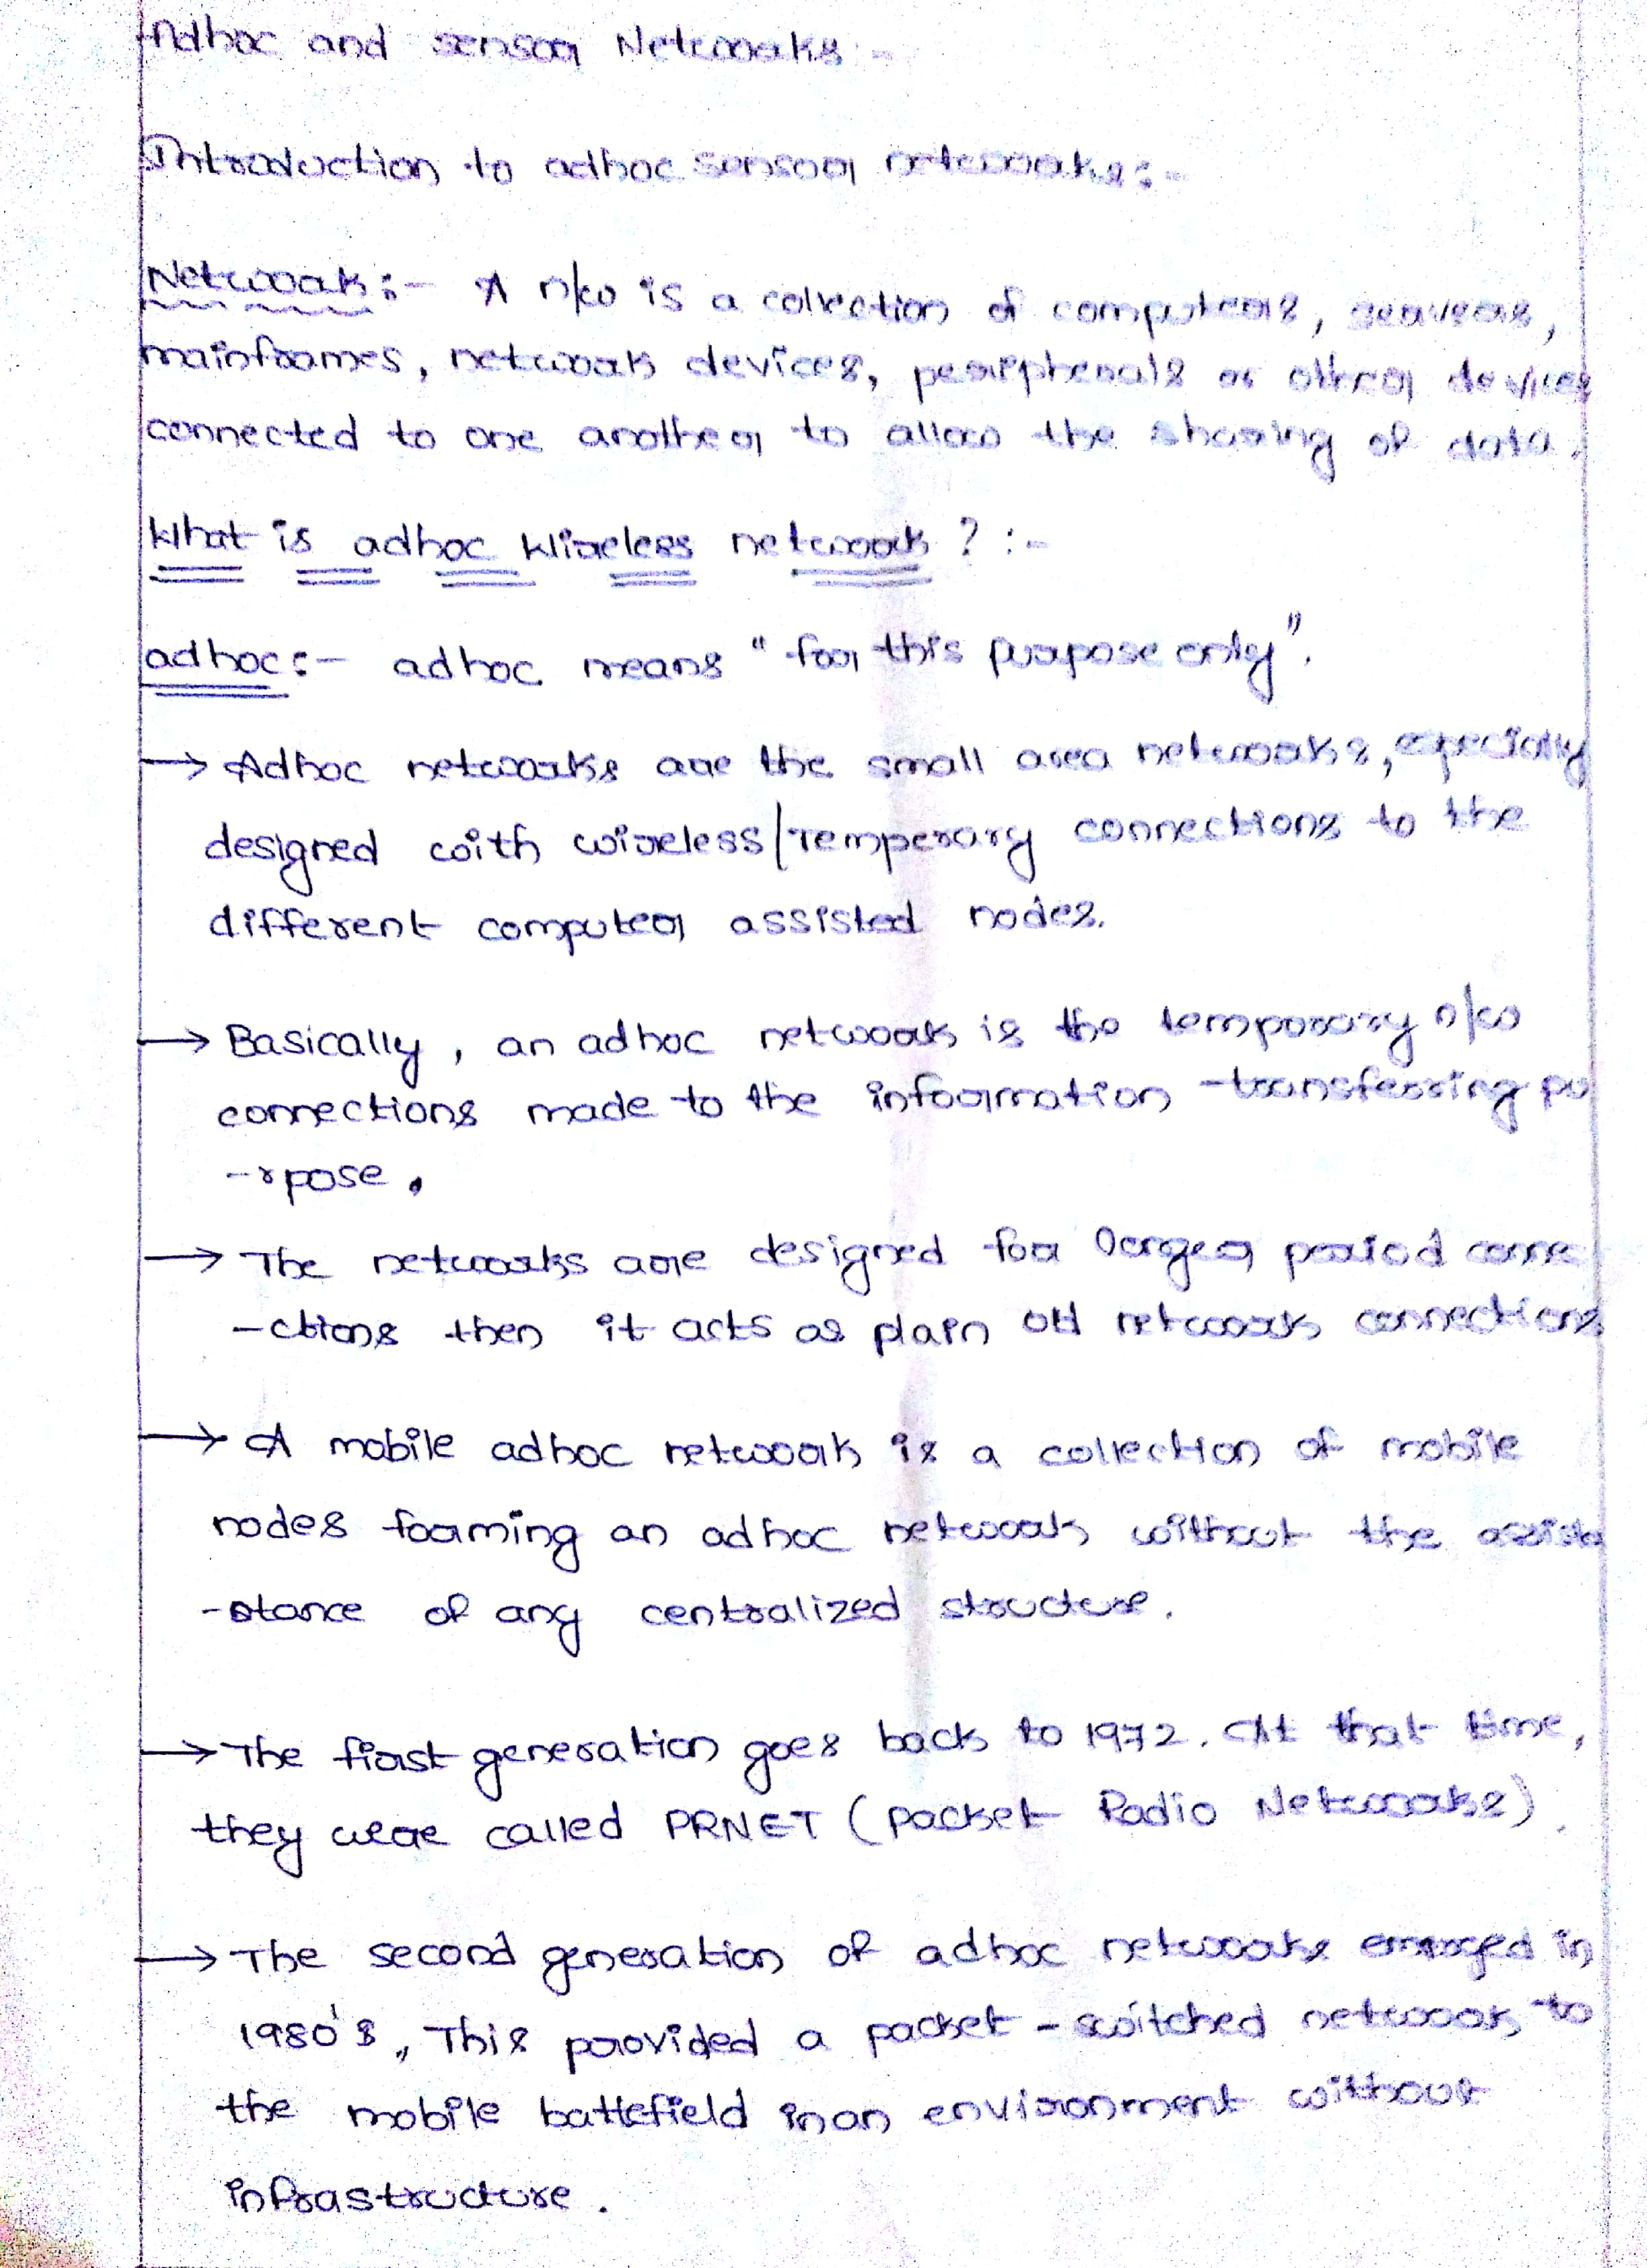 Adhoc and sensor Networks :-
Introduction to adhoc sensor networks :-
Network :- A n/w is a collection of computers, servers,
mainframes, network devices, peripherals or other devices
connected to one another to allow the sharing of data.
What is adhoc Wireless network ? :-
adhoc :- adhoc means "for this purpose only".
→ Adhoc networks are the small area networks, epecially
designed with wireless/Temperary connections to the
different computer assisted nodes.
→ Basically, an adhoc network is the temporary n/w
connections made to the information transferring pu
-rpose.
→ The networks are designed for larger period conne
-ctions then it acts as plain old network connections
→ A mobile adhoc network is a collection of mobile
nodes forming an adhoc network without the assista
-stance of any centralized structure.
→ The first generation goes back to 1972. At that time,
they were called PRNET (packet Radio Networks).
→ The second generation of adhoc networks emerged in
1980's, This provided a packet-switched network to
the mobile battlefield in an environment without
infrastructure.